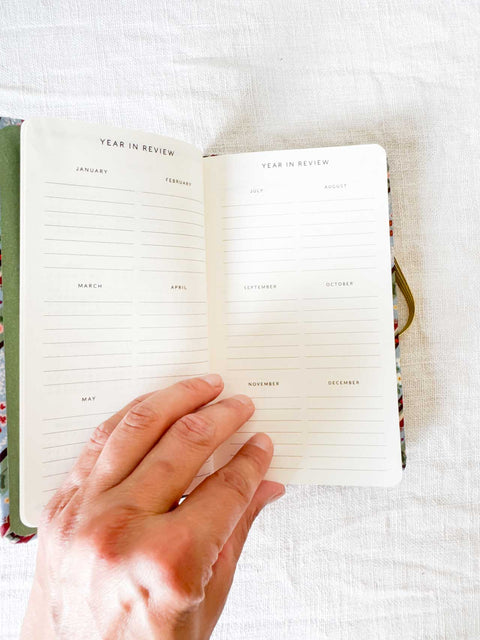 YEAR IN REVIEW
JANUARY FEBRUARY
MARCH APRIL
MAY
YEAR IN REVIEW
JULY AUGUST
SEPTEMBER OCTOBER
NOVEMBER DECEMBER